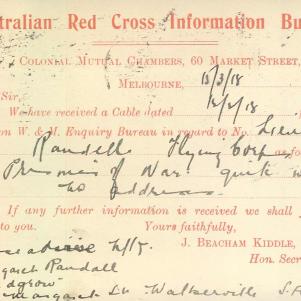 tralian Red Cross Information Bu
Colonial Mutual Chambers, 60 Market Street,
Melbourne, 15/3/18
Sir,
We have received a Cable dated 12/3/18
on W. & M. Enquiry Bureau in regard to No. Lieu
Randell Flying Corps as fo
Prisoner of War quite w
no address
If any further information is received we shall
to you. Yours faithfully,
J. Beacham Kiddle,
Hon. Secre
garet Randall
Margaret St Walkerville S.A